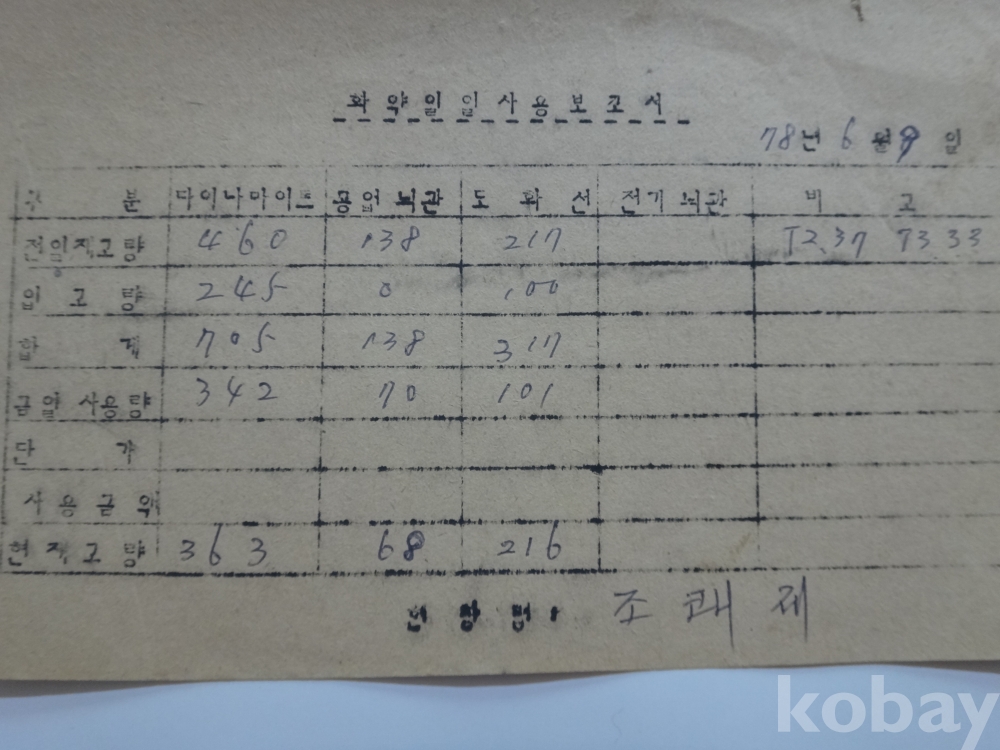 화약일일사용보고서
78년 6월 9일
구분 다이나마이트 공업뇌관 도화선 전기뇌관 비고
전일재고량 460 138 217 T2 37 T3 33
입고량 245 0 100
합계 705 138 317
금일사용량 342 70 101
단가
사용금액
현재고량 363 68 216
조쾌제
kobay